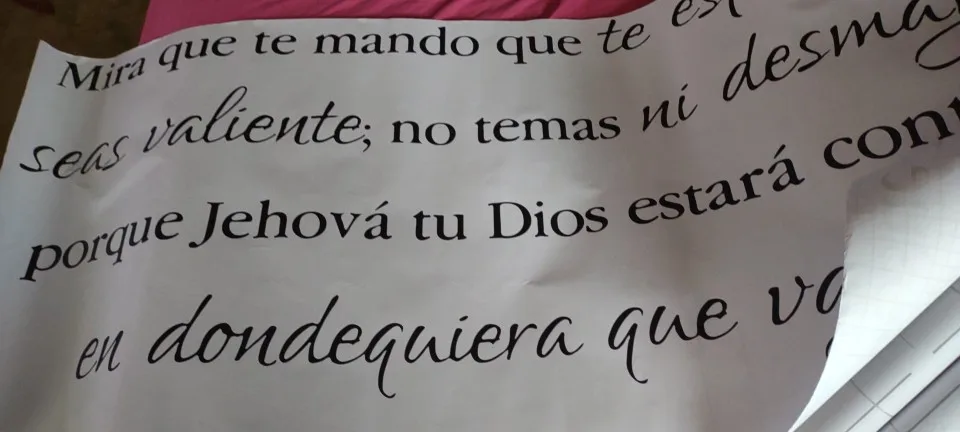 Mira que te mando que te
seas valiente; no temas ni
porque Jehová tu Dios estará
en dondequiera que